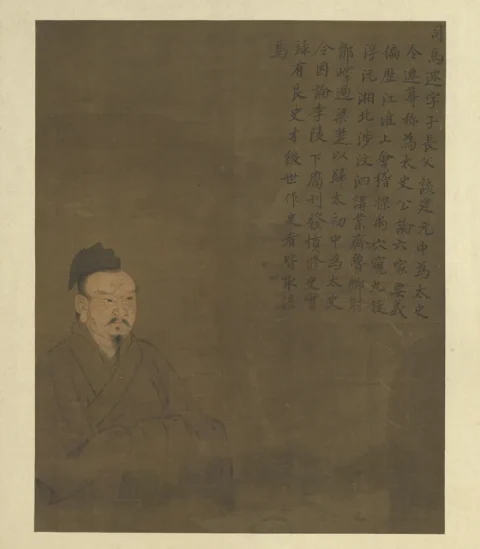 司馬遷字子長父談建元中為太史
令遷尊称為太史公論六家要義
徧歷江淮上會稽探禹穴窺九疑
浮沅湘北涉汶泗講業齊魯鄉射
鄒嶧過梁楚以歸太初中為太史
令因論李陵下腐刑發憤修史實
錄有良史才後世作史者取法
焉